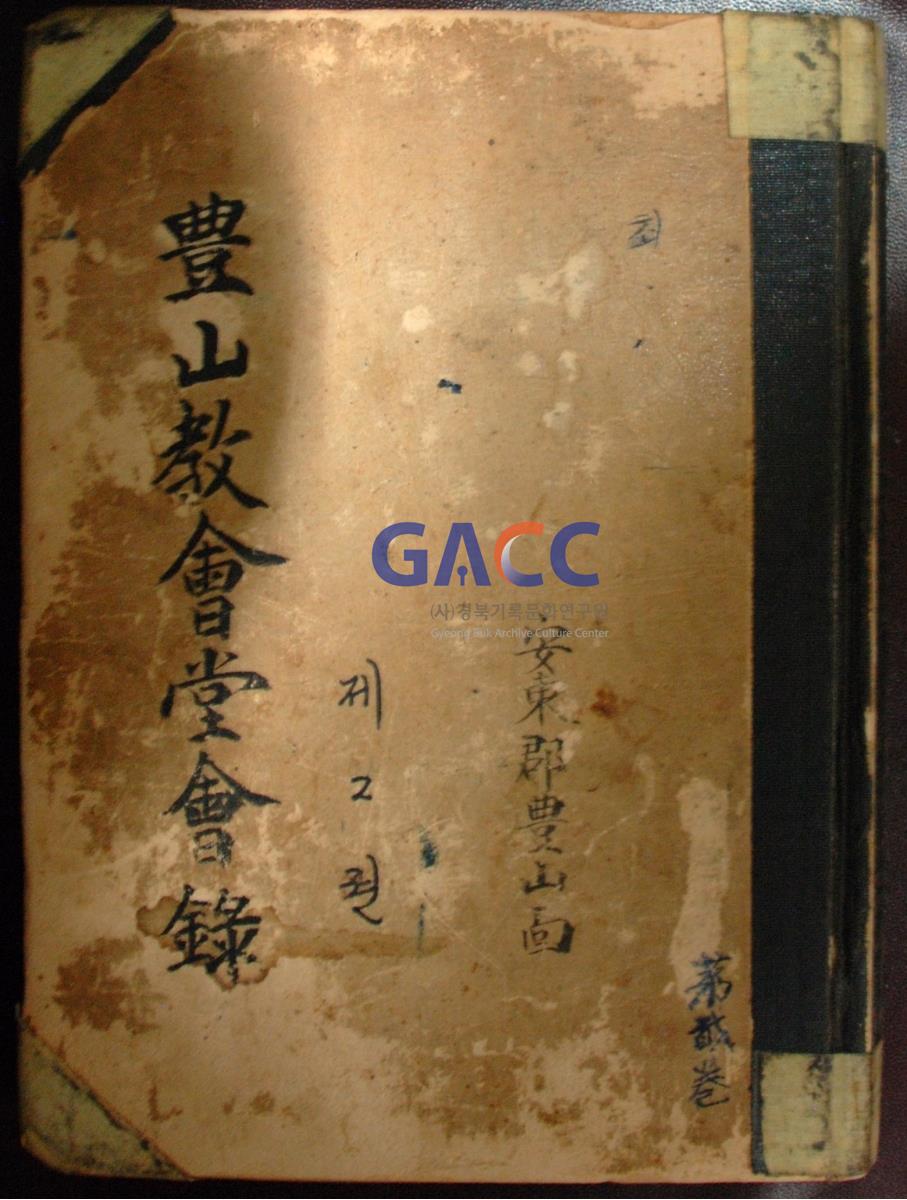 第貳巻
安東郡豊山面
제2권
豊山教會堂會錄
GACC
(사)경북기록문화연구원
Gyeong Buk Archive Culture Center